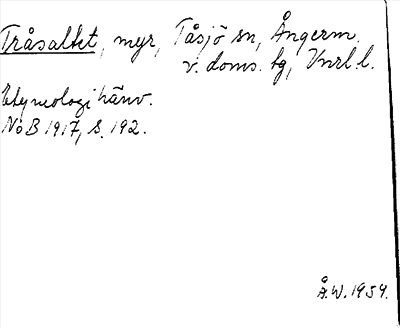 Tråsaltet, myr, Tåsjö sn, Ångerm.
v. doms. tg, Vnrl. l.
Etymologi hänv.
NoB 1917, S. 192.
Å.W. 1959.